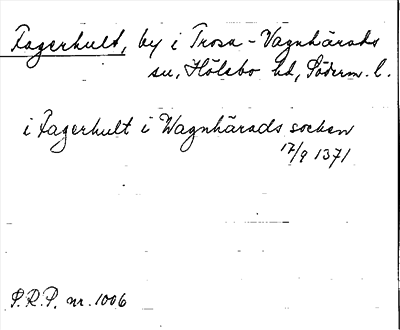 Fagerhult, by i Trosa-Vagnhärads
sn, Hölebo hd, Söderm. l.
i Fagerhult i Wagnhärads socken
17/9 1371
S.R.P. nr. 1006